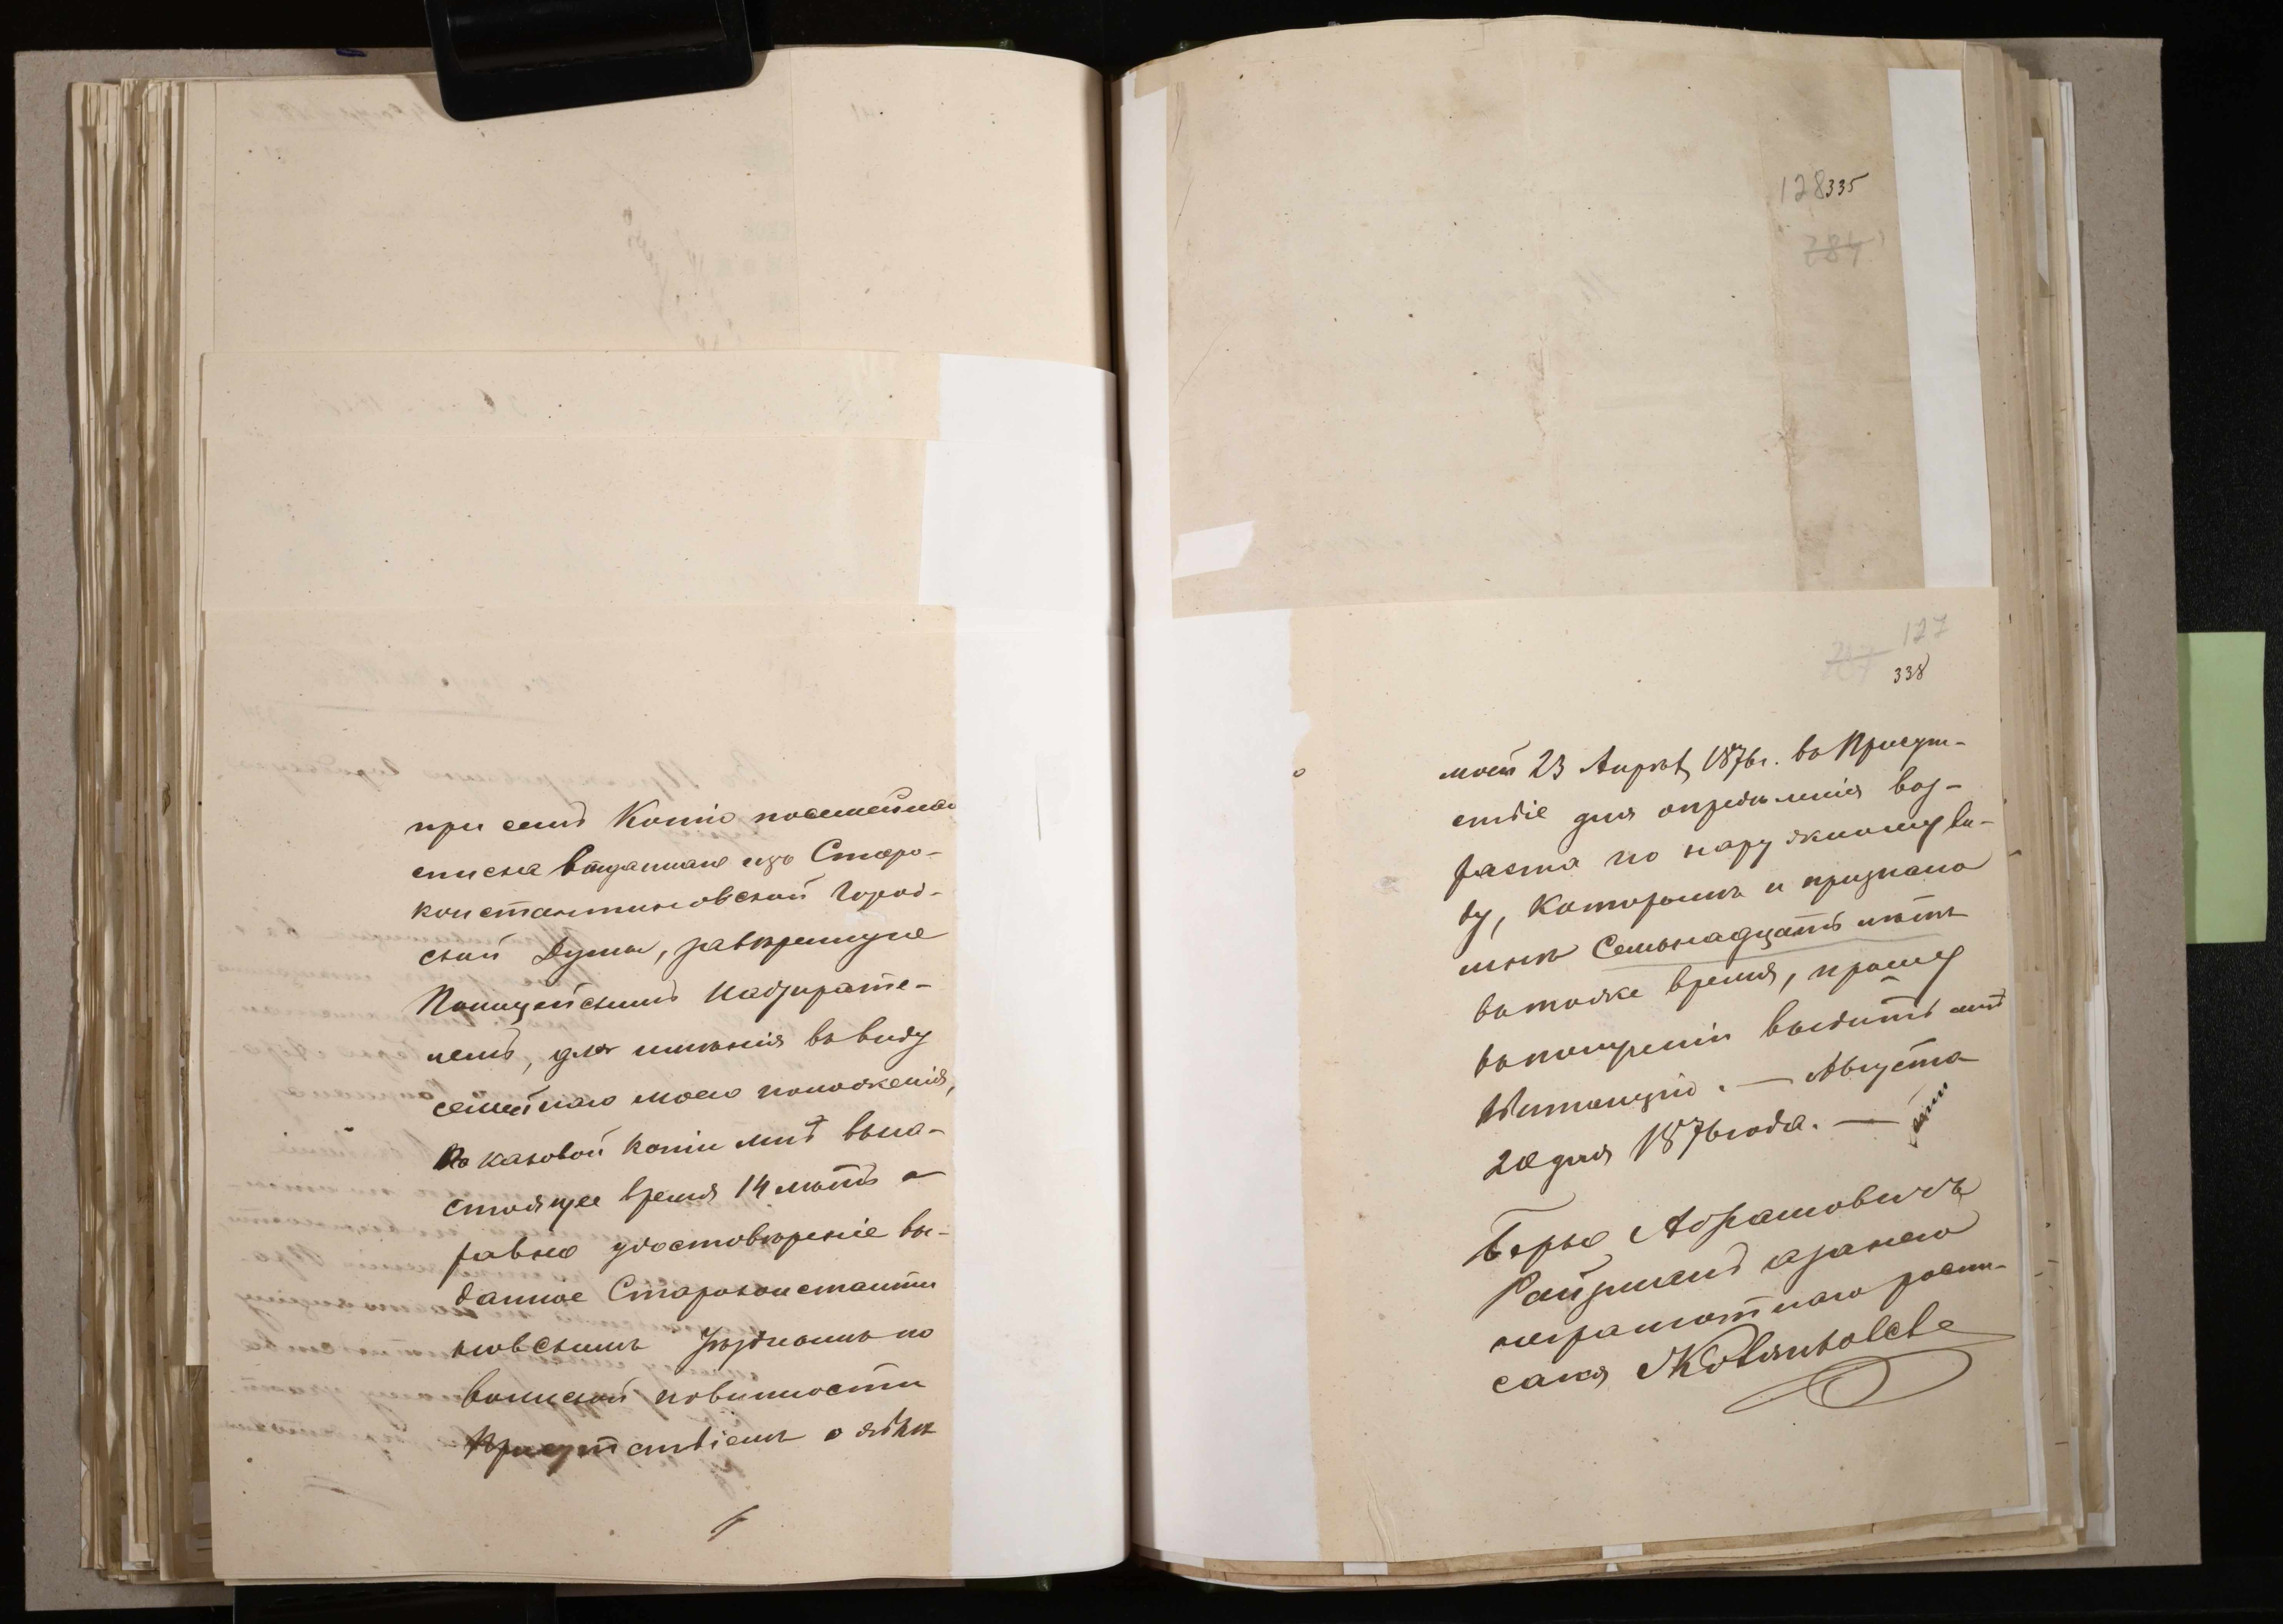 при семъ Копію посемейнаго
списка выданнаго изъ Старо-
константиновской Город-
ской Думы, завѣренную
Полицейскимъ Надзирате-
лемъ, для имѣнія въ виду
семейнаго моего положенія,
по каковой копіи мнѣ въ на-
стоящее время 14 лѣтъ а
равно удостовѣреніе вы-
данное Староконстанти
новскимъ Уѣзднымъ по
воинской повинности
Присутствіемъ о явкѣ
128 335
284
127
338
моей 23 Апрѣля 1876 г. въ Присут-
ствіе для опредѣленія воз-
раста по наружному ви-
ду, которымъ и признано
мнѣ Семьнадцать лѣтъ
въ тоже время, прошу
въ полученіи выдать мнѣ
Квитанцію. — Августа
20 дня 1876 года. —
Берко Абрамовичъ
Райзманъ а за него
неграмотнаго роспи-
сался